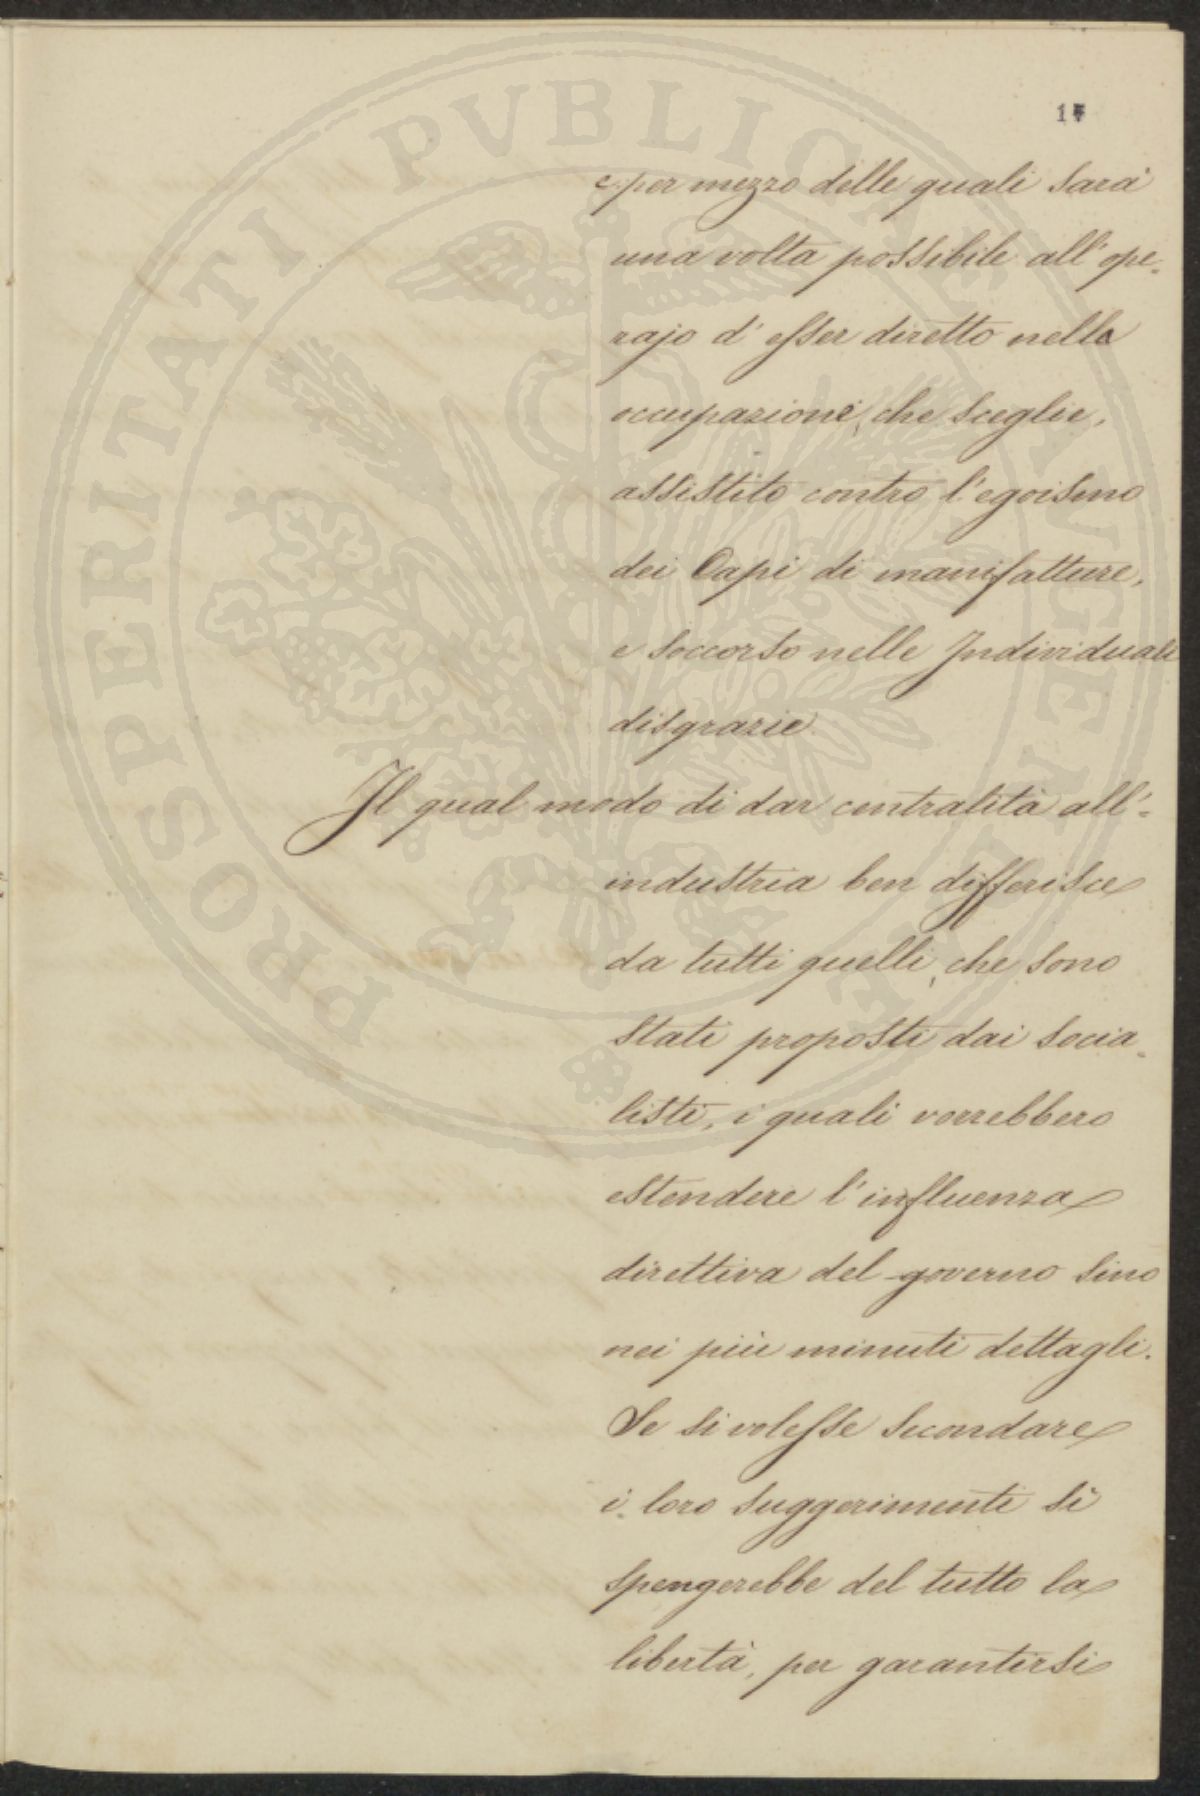 e per mezzo delle quali sarà
una volta possibile all'ope-
rajo d'esser diretto nella
occupazione, che sceglie,
assistito contro l'egoismo
dei Capi di manifatture,
e soccorso nelle Individuali
disgrazie
Il qual modo di dar centralità all'-
industria ben differisce
da tutti quelli, che sono
stati proposti dai socia-
listi, i quali vorrebbero
estendere l'influenza
direttiva del governo sino
nei più minuti dettagli.
Se si volesse secondare
i loro suggerimenti si
spengerebbe del tutto la
libertà, per garantirsi
PROSPERITATI PVBLICAE AVGENDAE